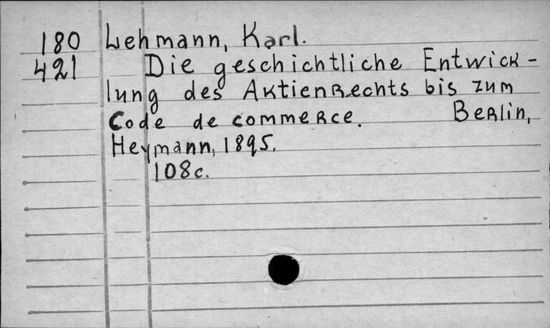 180 Lehmann, Karl.
421 Die geschichtliche Entwick-
lung des Aktienrechts bis zum
Code de commerce. Berlin,
Heymann, 1895.
108c.